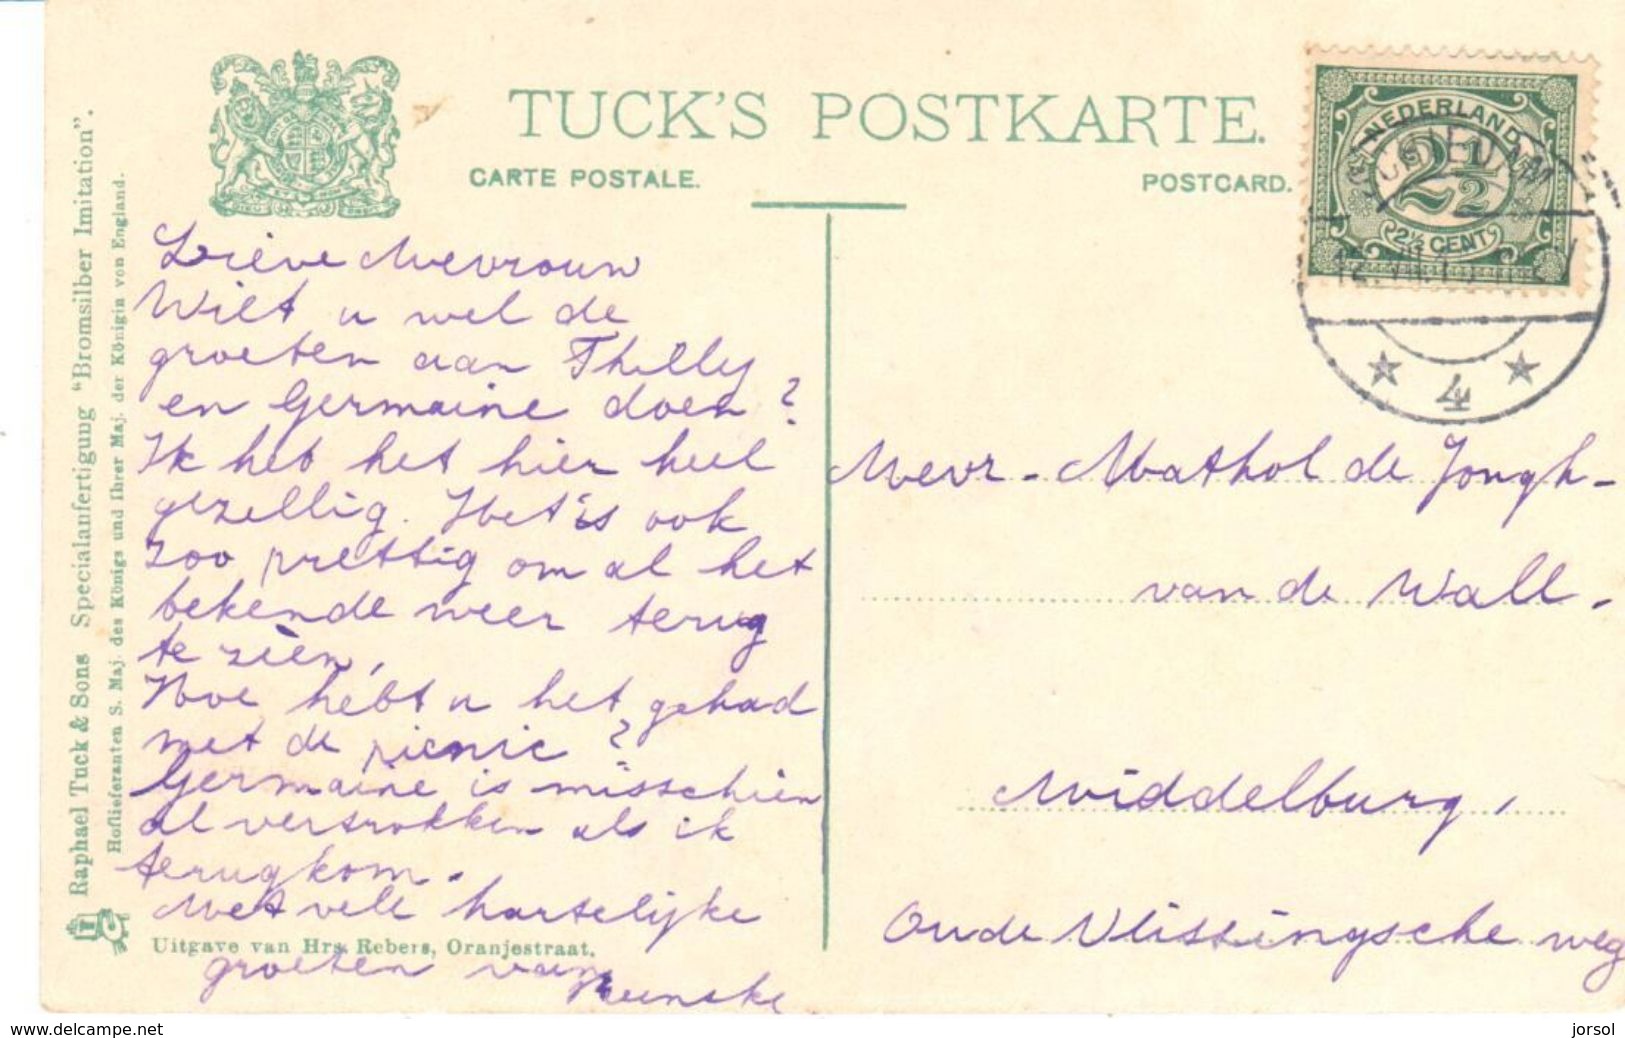 TUCK'S POSTKARTE.
CARTE POSTALE.
POSTCARD.
NEDERLAND
2½
2½ CENT
4
Raphael Tuck & Sons Specialanfertigung "Bromsilber Imitation".
Hoflieferanten S. Maj. des Königs und Ihrer Maj. der Königin von England.
Liève Mevrouw
Wilt u wel de
groeten aan Thilly
en Germaine doen?
Ik heb het hier heel
gezellig. Het is ook
zoo prettig om al het
bekende weer terug
te zièn,
Hoe hebt u het gehad
met de picnic?
Germaine is misschien
al vertrokken als ik
terugkom.
Met vele hartelijke
groeten van
Uitgave van Hrs. Rebers, Oranjestraat.
Mevr. Mathol de Jongh-
van de Wall.
Middelburg,
Oude Vlissingsche weg
www.delcampe.net
jorsol